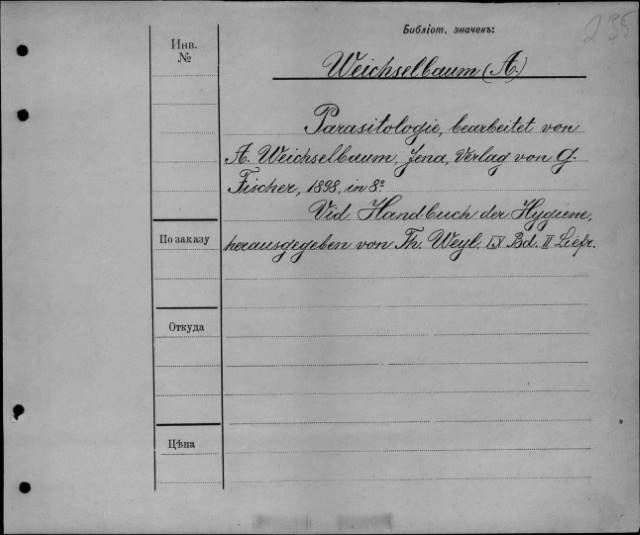 235
Библіот. значекъ:
Инв.
№
Weichselbaum (A.)
Parasitologie, bearbeitet von
A. Weichselbaum, Jena, Verlag von G.
Fischer, 1898, in 8º
Vid. Handbuch der Hygiene,
По заказу
herausgegeben von Th. Weyl. IX Bd. II Liefr.
Откуда
Цѣна